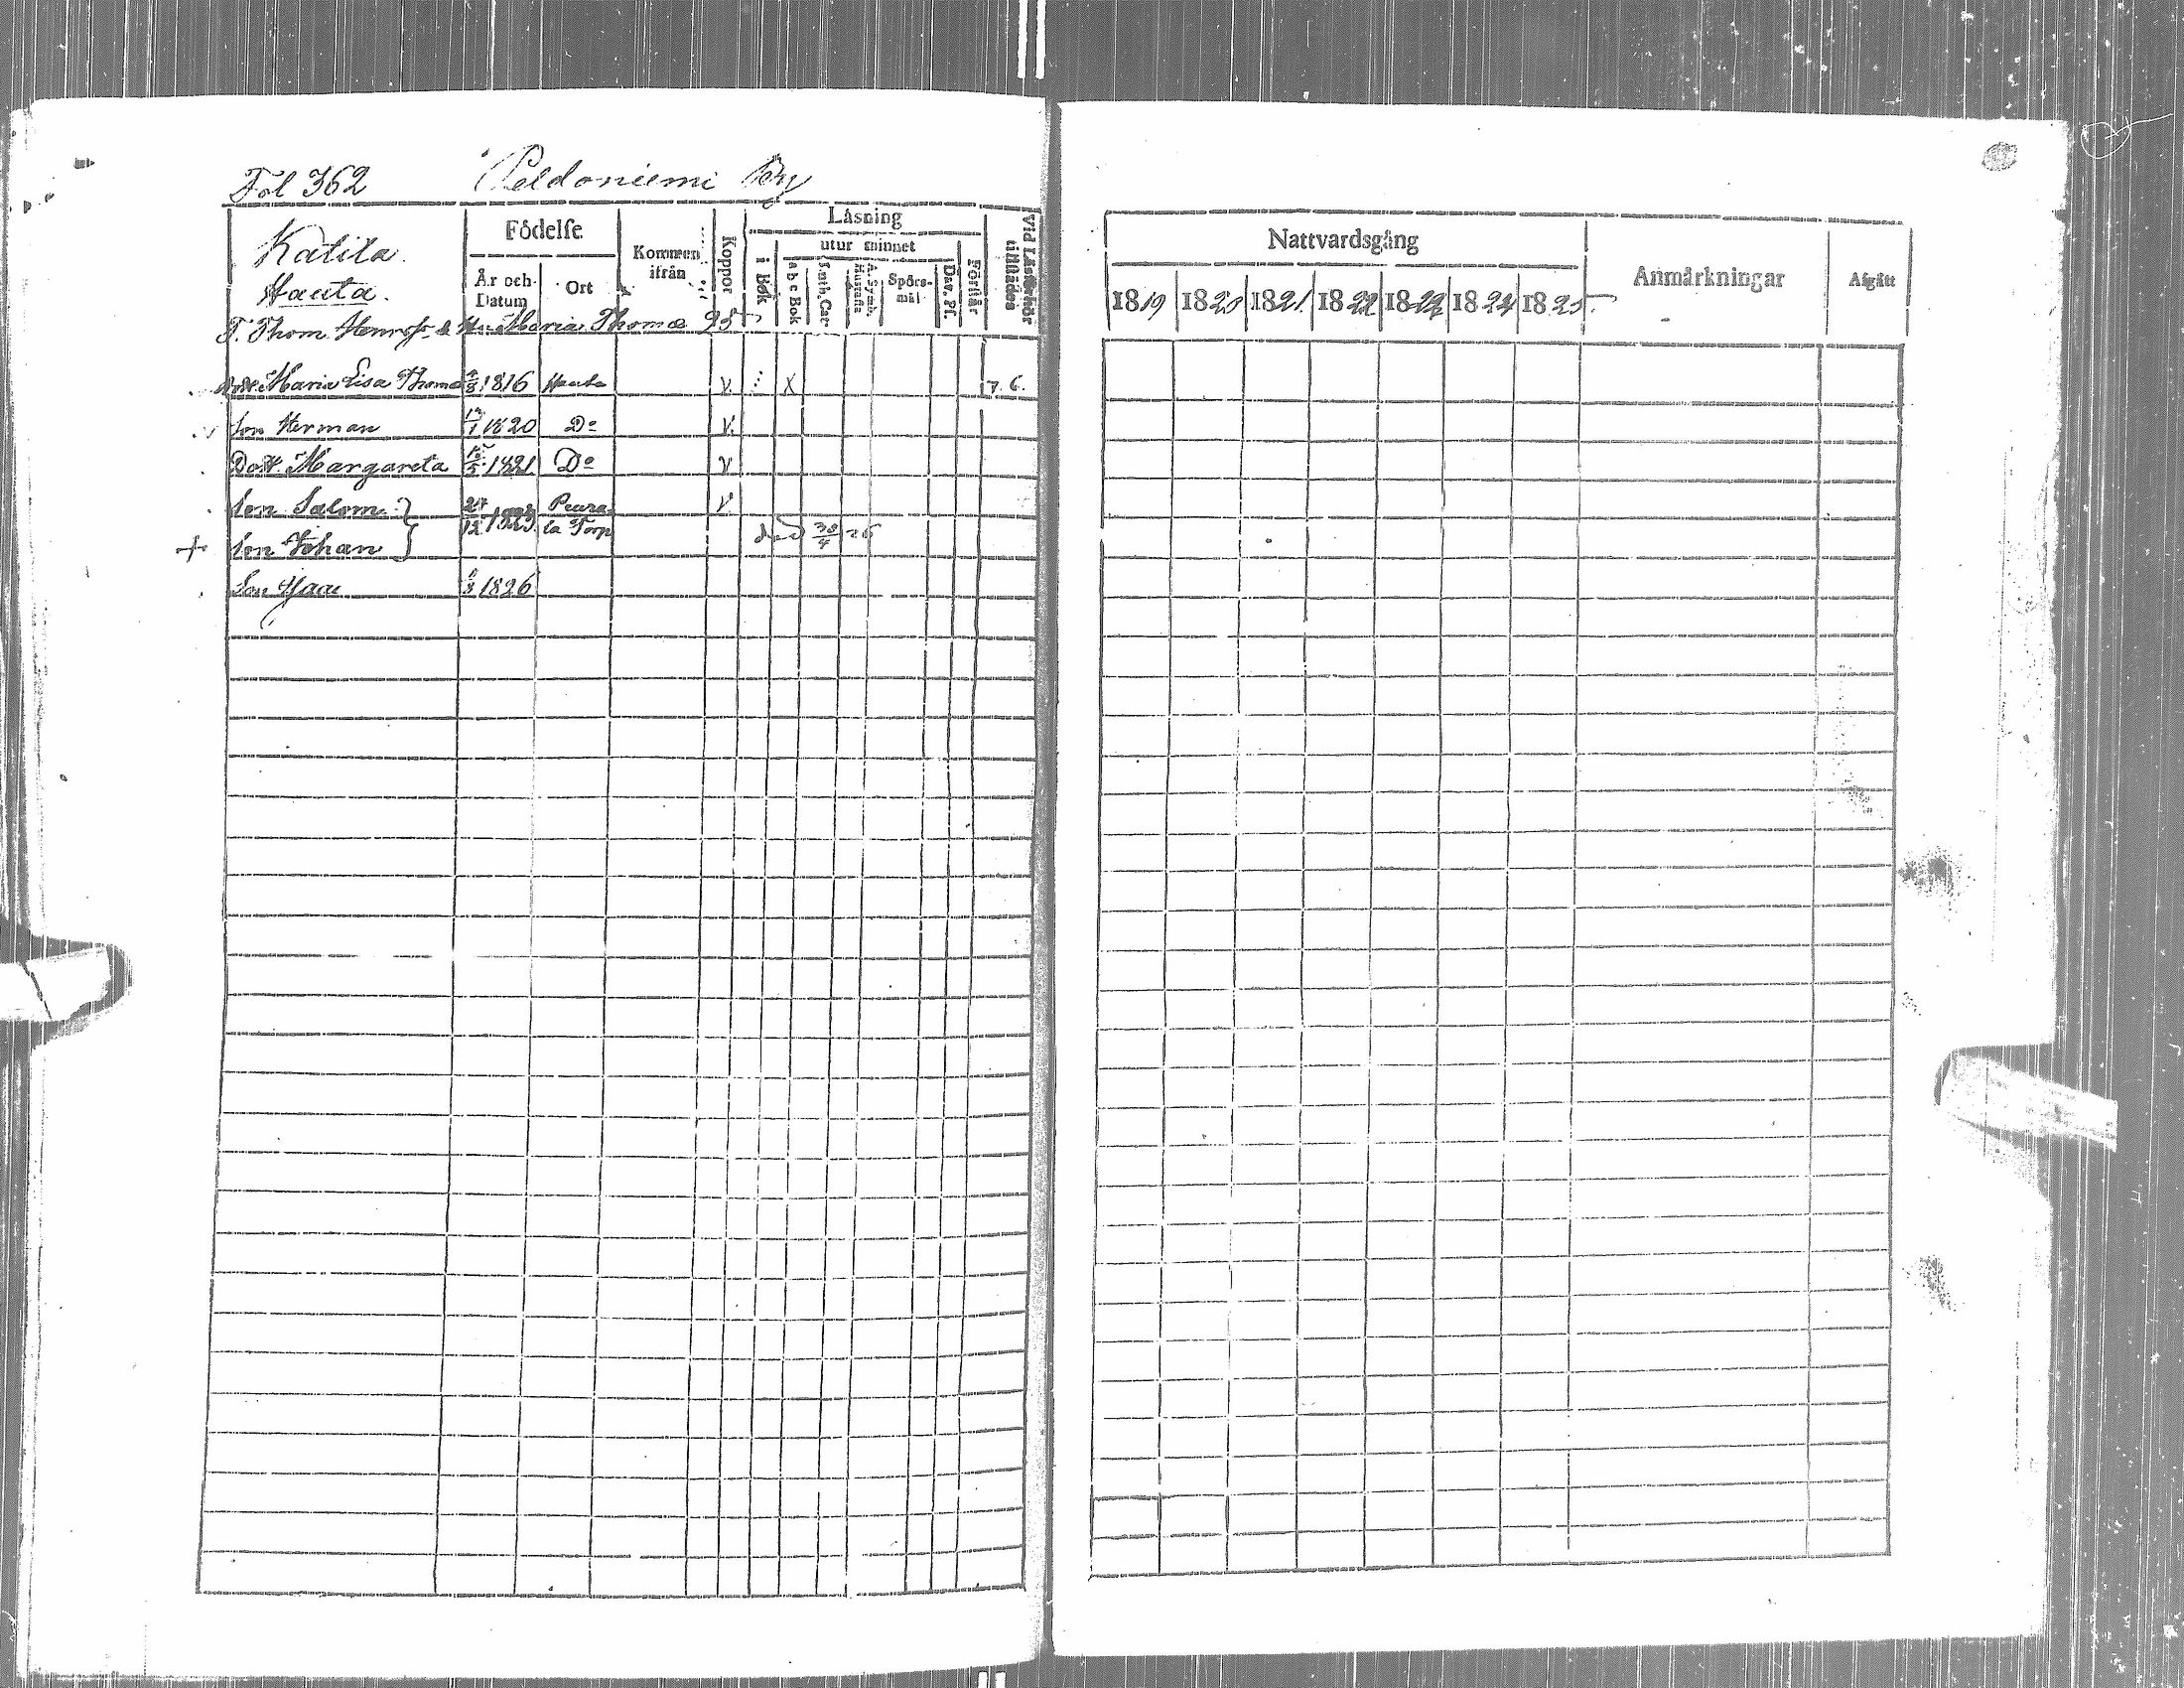 Fol 362 Peldoniemi By
Katila.
Hauta.
Födelse
År och Datum
Ort
Kommen ifrån
Koppor
Läsning
i Bok
utur minnet
a b c Bok
Luth. Cat.
A. Symb. Hustafla
Spörs-mål
Dav. Ps.
Förstår
Vid Läsförhör tillstädes
T. Thom. Henrss. & Hu Maria Thomæ 25
Dott. Maria Lisa Thomæ 4/8 1816 Hauta v. X 7. 6.
Son Herman 1820 Do v.
Dott. Margareta 1821 Do v
Son Salom. } 27/12 Peura- v.
+ Son Johan } la Torp död 30/4 26
Son Isaac 1826
Nattvardsgång
1819 1820 1821. 1822 1823 1824 1825.
Anmärkningar
Afgått